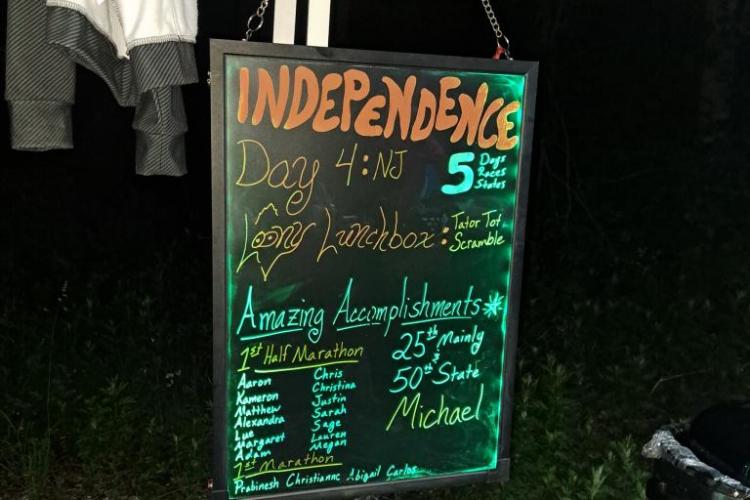 INDEPENDENCE
Day 4: NJ
5 Days
Races
States
Loony Lunchbox: Tator Tot
Scramble
Amazing Accomplishments
1st Half Marathon
Aaron
Kameron
Matthew
Alexandra
Lue
Margaret
Adam
Chris
Christina
Justin
Sarah
Sage
Lauren
Megan
25th Mainly
&
50th State
Michael
1st Marathon
Prabinesh Christianne Abigail Carlos